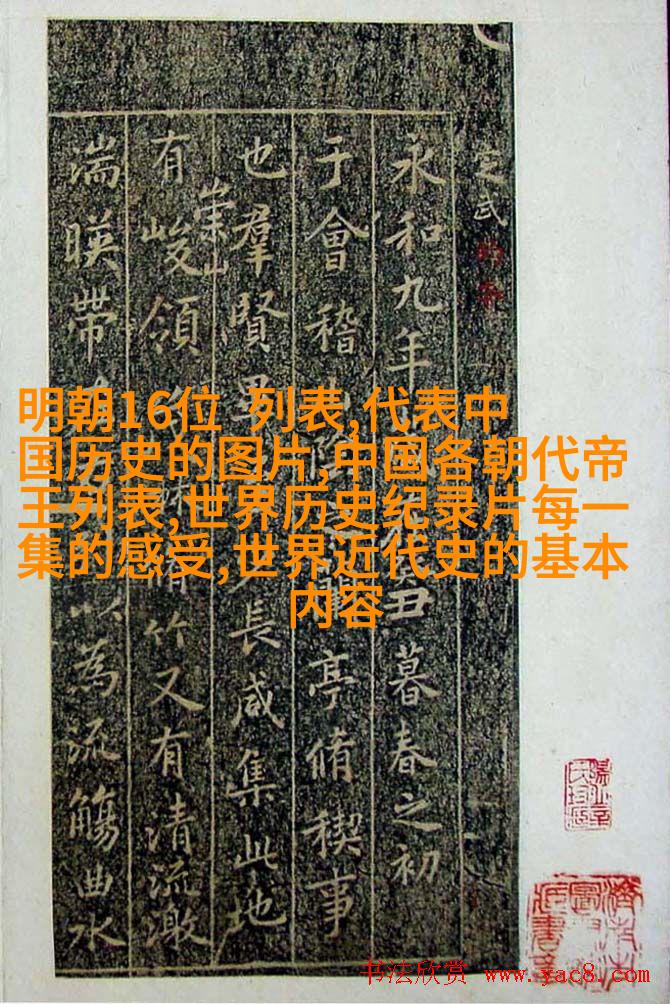 定武
永和九年丑暮春之初
于會稽山亭脩稧事
也羣賢畢長咸集此地
有崇山峻領竹又有清流激
湍暎帶以為流觴曲水
明朝16位 列表,代表中
国历史的图片,中国各朝代帝
王列表,世界历史纪录片每一
集的感受,世界近代史的基本
内容
书法欣赏 www.yac8.com